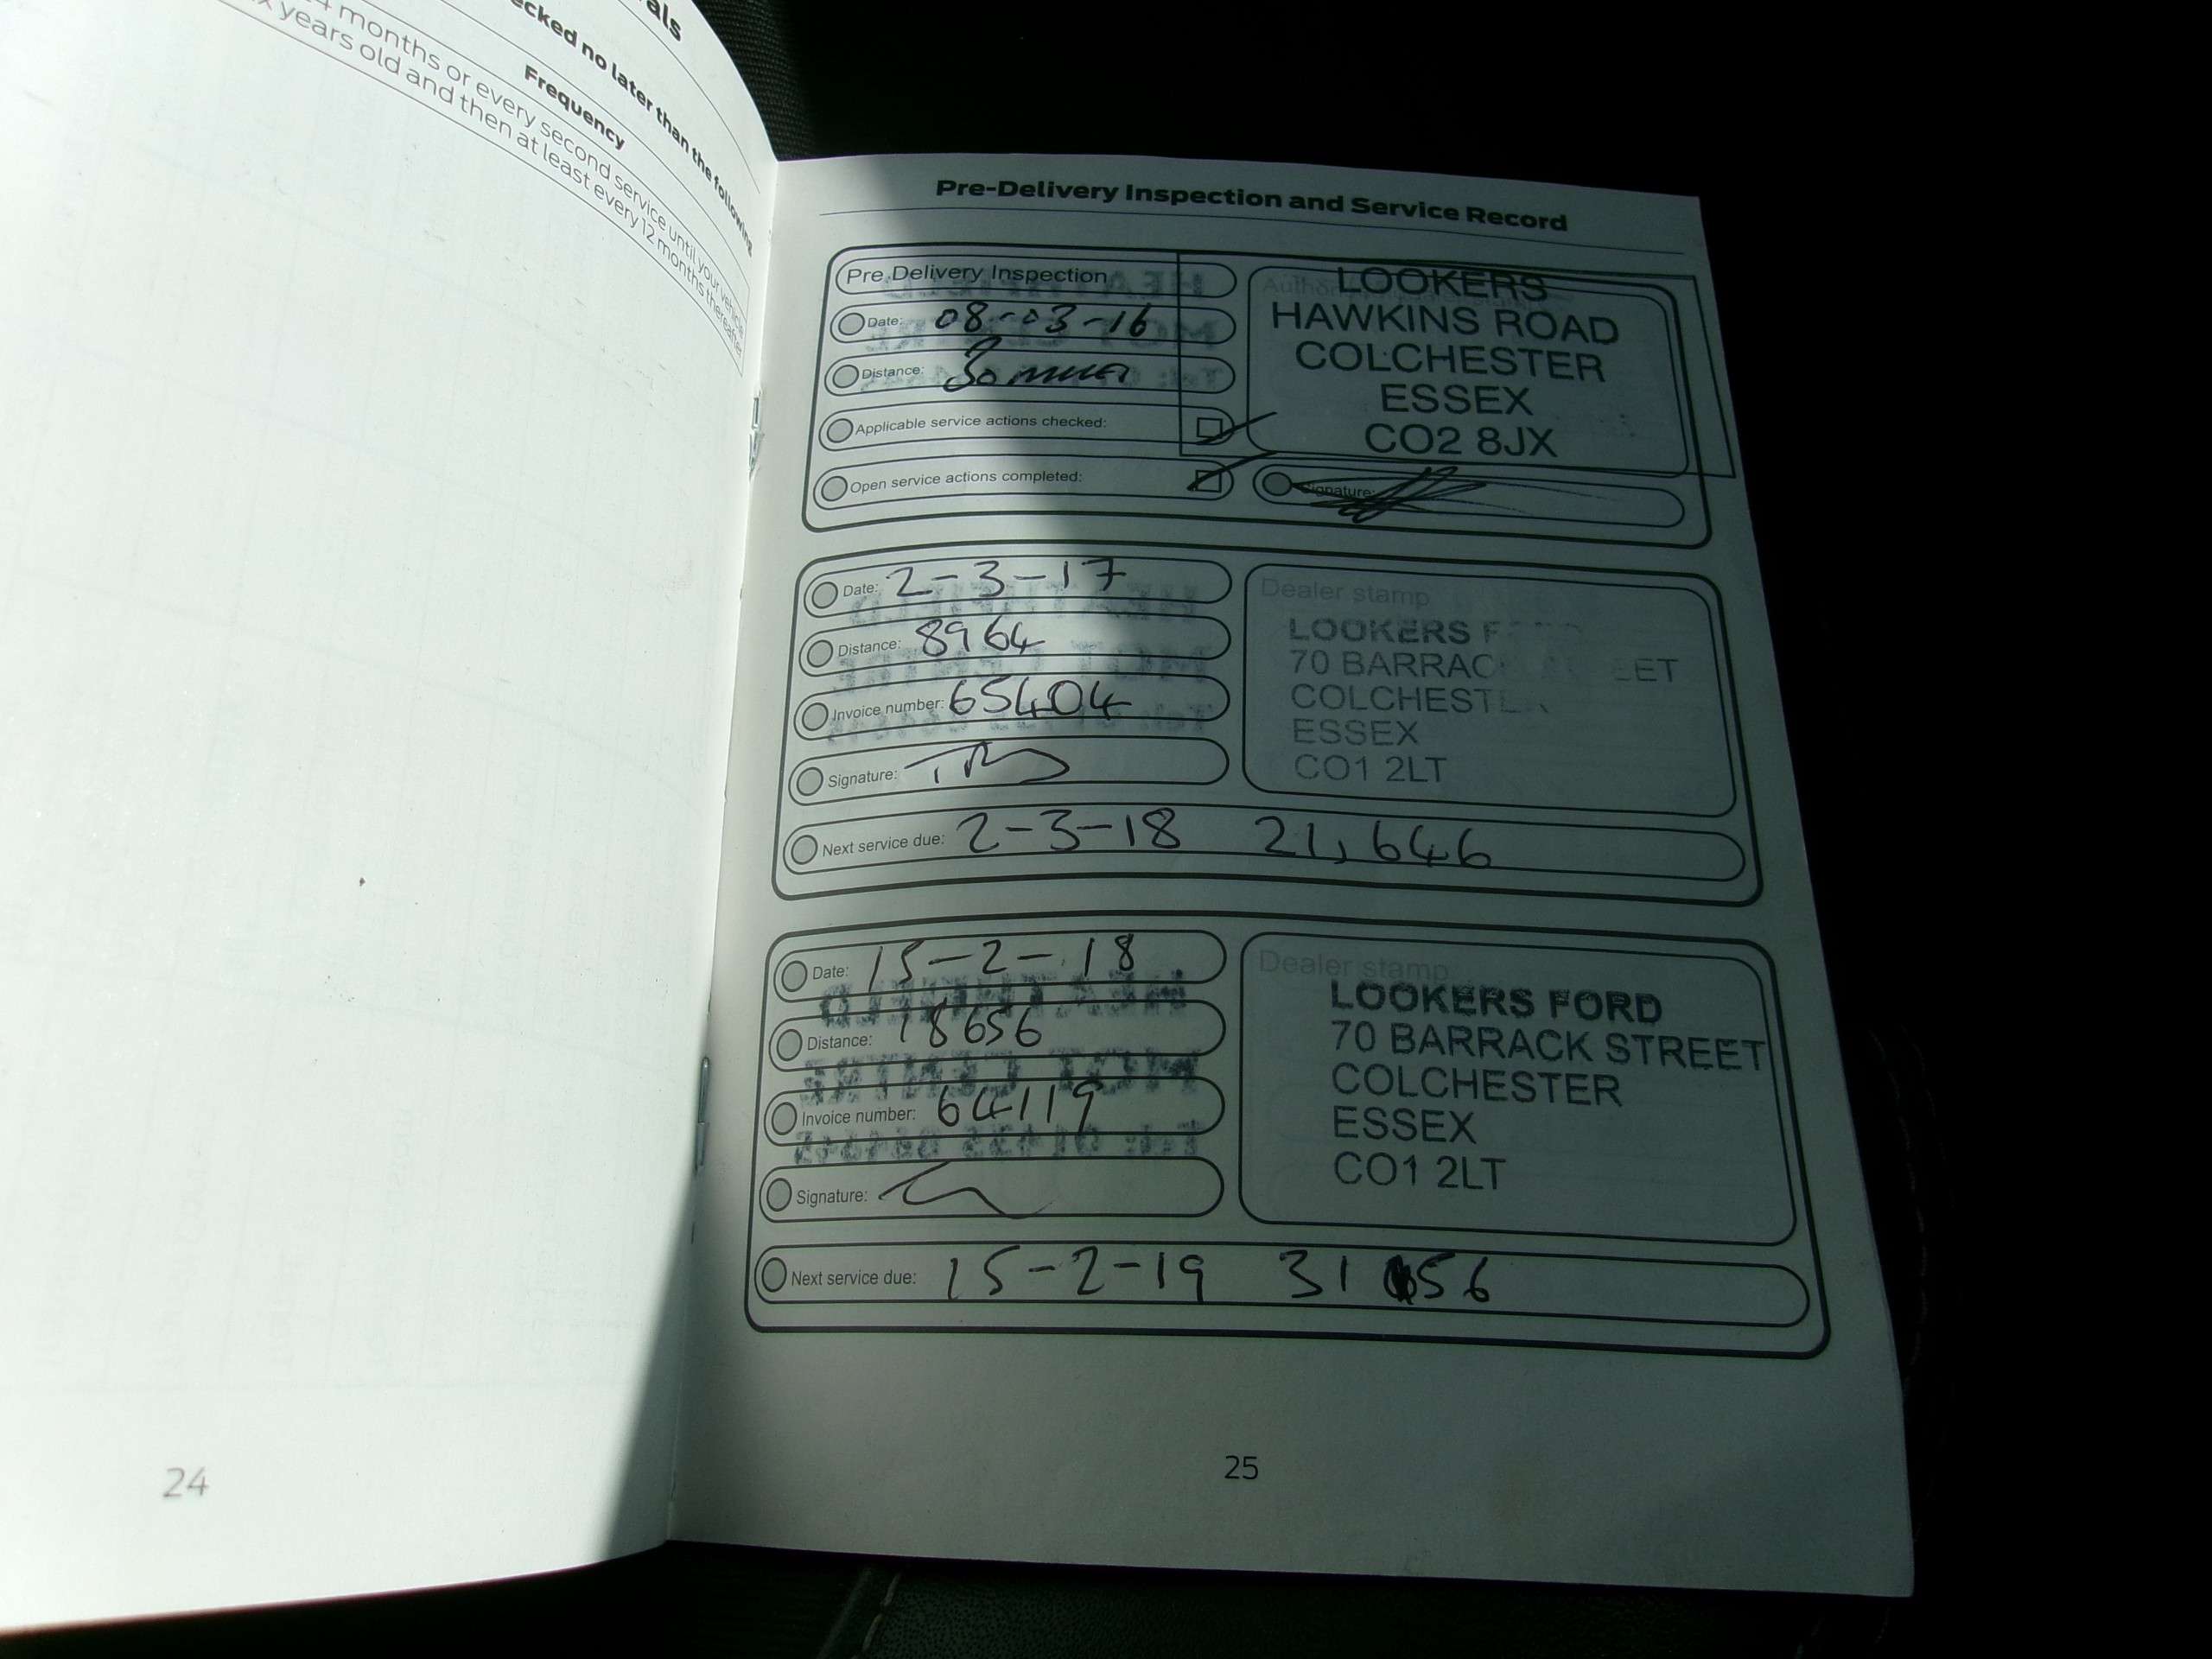 als
ecked no later than the following
Frequency
4 months or every second service until your vehicle
x years old and then at least every 12 months thereafter
24
Pre-Delivery Inspection and Service Record
Pre Delivery Inspection
Date: 08-03-16
Distance:
Applicable service actions checked:
Open service actions completed:
LOOKERS
HAWKINS ROAD
COLCHESTER
ESSEX
CO2 8JX
Signature:
Date: 2-3-17
Distance: 8964
Invoice number: 65404
Signature:
Next service due: 2-3-18 21,646
Dealer stamp
LOOKERS F
70 BARRAC EET
COLCHEST
ESSEX
CO1 2LT
Date: 15-2-18
Distance: 18656
Invoice number: 64119
Signature:
Next service due: 15-2-19 31 656
Dealer stamp
LOOKERS FORD
70 BARRACK STREET
COLCHESTER
ESSEX
CO1 2LT
25